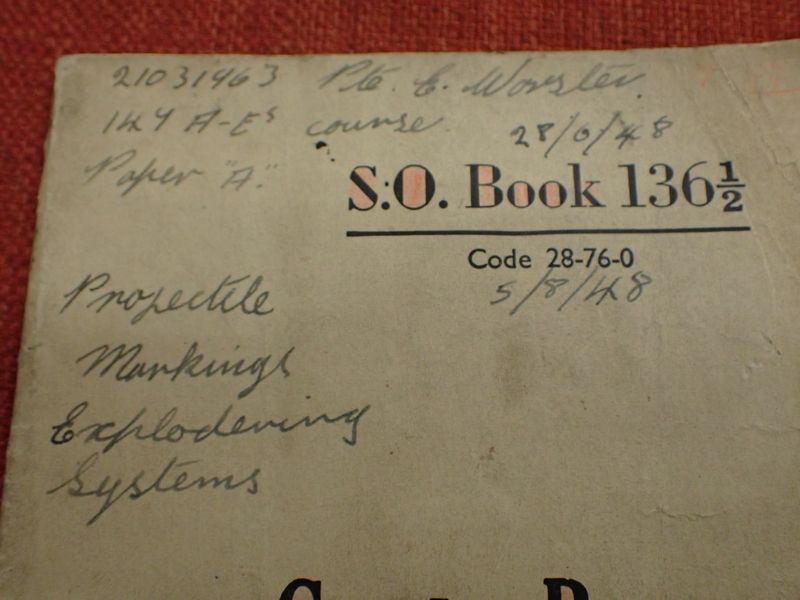 21031963 Pte. E. Worster
147 A-Es course 28/6/48
Paper "A."
S.O. Book 136½
Code 28-76-0
5/8/48
Projectile
Markings
Explodering
Systems